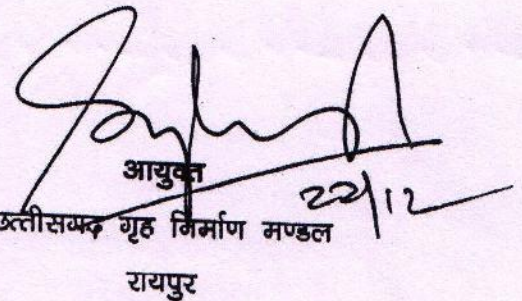 आयुक्त
22/12
छत्तीसगढ़ गृह निर्माण मण्डल
रायपुर